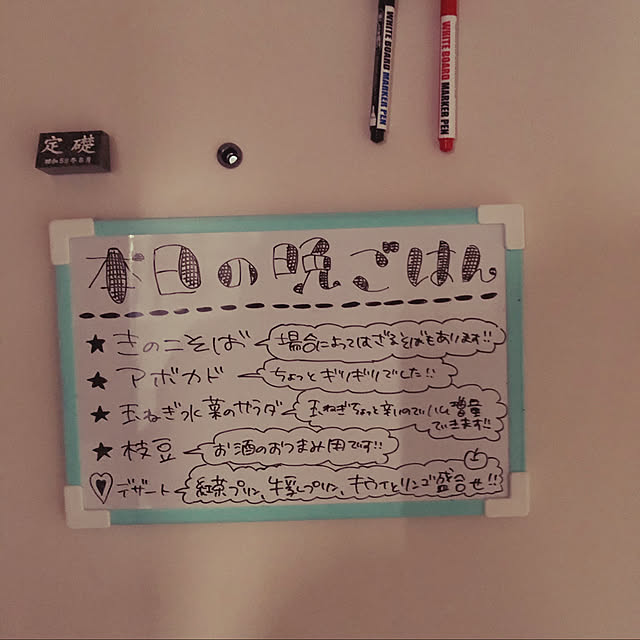 WHITE BOARD MARKER PEN
WHITE BOARD MARKER PEN
定礎
昭和59年8月
本日の晩ごはん
★ きのこそば 場合によってはざるそばもあります!!
★ アボカド ちょっとギリギリでした!!
★ 玉ねぎ水菜のサラダ 玉ねぎちょっと辛いのでハム増量
できます!!
★ 枝豆 お酒のおつまみ用です!!
デザート 紅茶プリン、牛乳プリン、キウイとリンゴ盛合せ!!